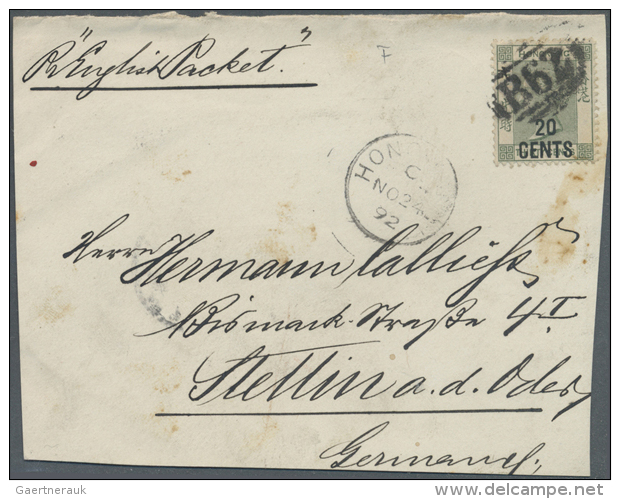 Pr "English Packet."
F
HONG
B62
20
CENTS
HONG
C
NO 24
92
Herrn Hermann Calliess
Bismarck-Straße 4 I
Stettin a. d. Oder
Germany.
Gaertnerauk
delcampe.net